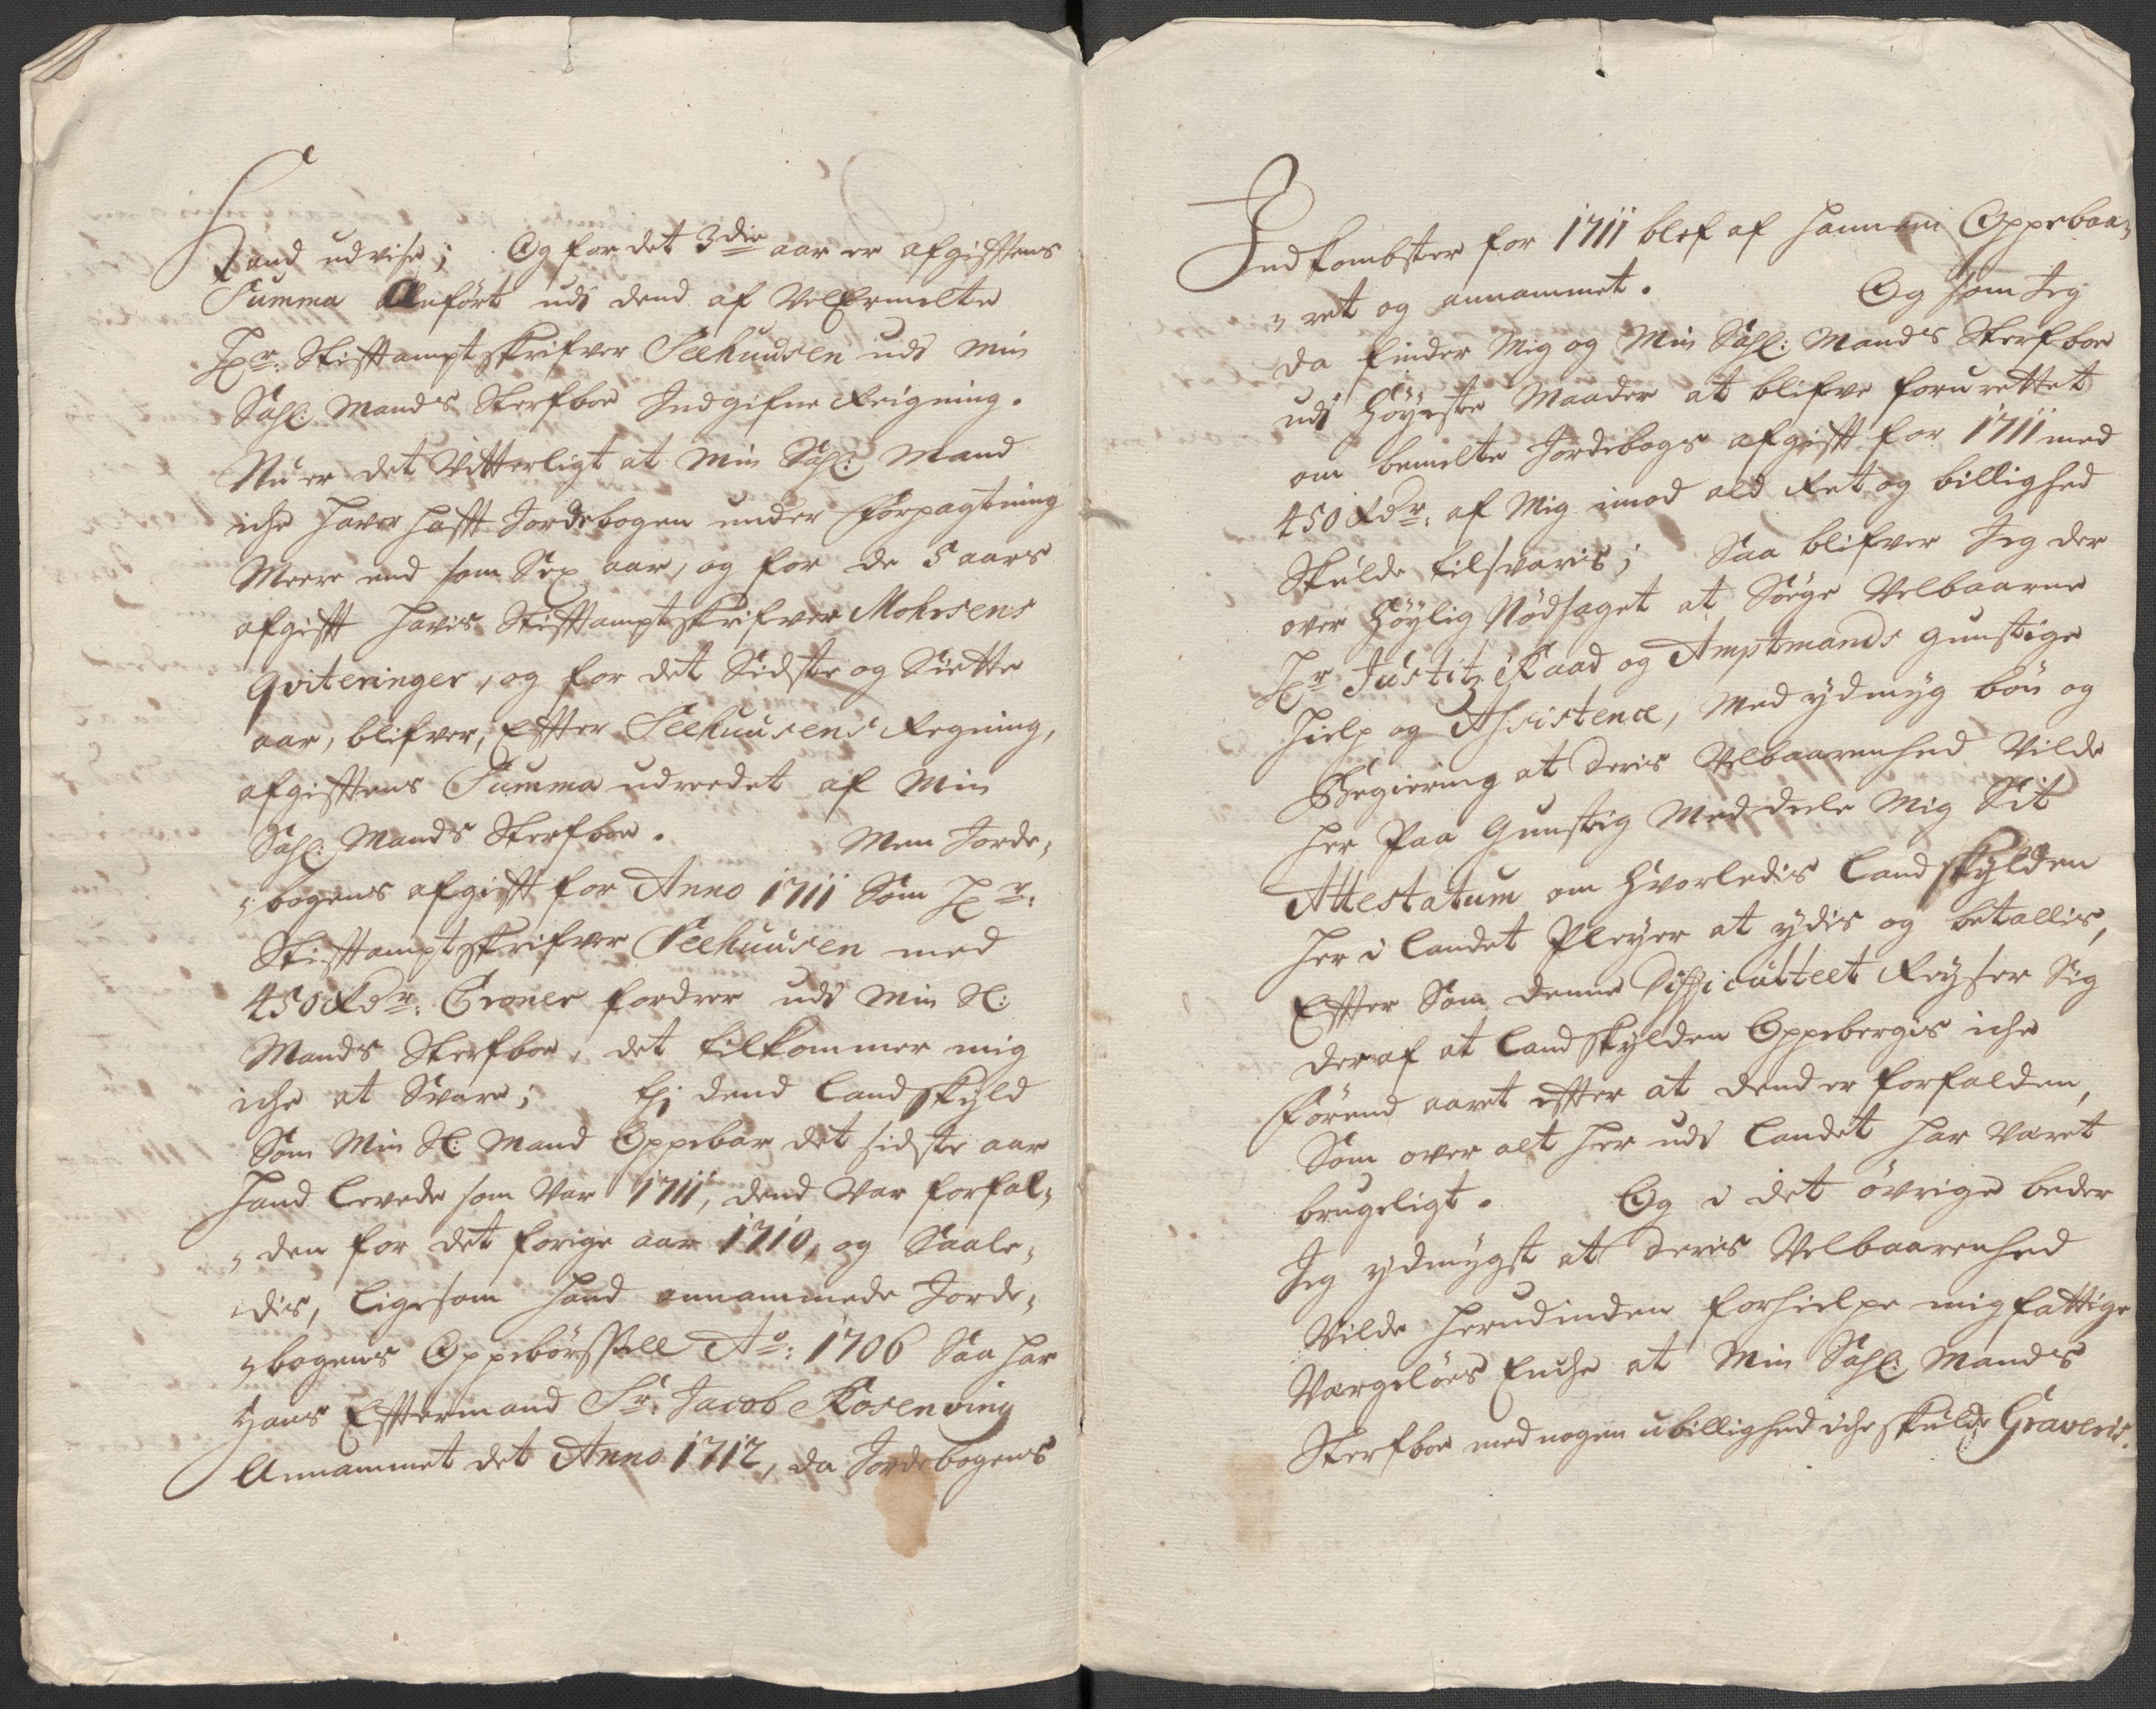 Haand udviser; Og for det 3die aar er afgifftens
Summa Anført udi dend af VelErmelte
Hr. Stifftamptskrifver Seehuusen udi min
Sahl: Mands Sterfboe Indgifne Reigning.
Nu er det Vitterligt at min Sahl: Mand
iche haver hafft Jordebogen under Forpagtning
Meere end som Sex aar, og for de 5 aars
afgifft havis Stifftamptskrifver Mohrsens
Qviteringer, og for det Sidste og Siette
aar, blifver, Effter Seehuusens Regning,
afgifftens Summa udreedet af Min
Sahl: Mands Sterfboe. Men Jorde-
bogens afgifft for Anno 1711 Som Hr:
Stifftamptskrifver Seehuusen med
450 Rdr: Croner fordrer udi Min Sl:
Mands Sterfboe, det tilkommer mig
iche at Svare; Thi dend Landskyld
Som Min Sl: Mand Oppebar det sidste aar
Hand levede som Var 1711, dend Var forfal-
den for det forige aar 1710, og Saale-
dis, ligesom Hand annammede Jorde-
bogens Oppebørssell Ao: 1706 Saa har
Hans Efftermand Sr. Jacob Rosenving
Annammet det Anno 1712, da Jordebogens
Indkombster for 1711 blef af hannem Oppebaa-
ret og annammet. Og som Jeg
da finder Mig og Min Sahl: Mands Sterfboe
udi Høyeste Maader at blifve forurettet
om bemelte Jordebogs afgifft for 1711 med
450 Rdr. af Mig imod ald Ret og billighed
Skulde tilsvaris; Saa blifver Jeg der
over Høylig Nødsaget at Søege Velbaarne
Hr. Justitz Raad og Amptmands gunstige
Hielp og Assistence, Med ydmyg bøn og
Begiering at deris Velbaarenhed Vilde
her Paa Gunstig Meddeele Mig Sit
Attestatum om hvorledis Landskylden
her i Landet Pleyer at ydis og betallis,
Effter Som denne Difficulteet Reyser Sig
deraf at Landskylden Oppebergis iche
Førend aaret effter at dend er forfalden,
Som over alt her udi Landet har Været
brugeligt. Og i det øvrige beder
Jeg ydmygst at deris Velbaarenhed
Vilde herudinden forhielpe mig fattige
Vergeløes Enche at Min Sahl: Mands
Sterfboe med nogen ubillighed iche skulde Graveris.